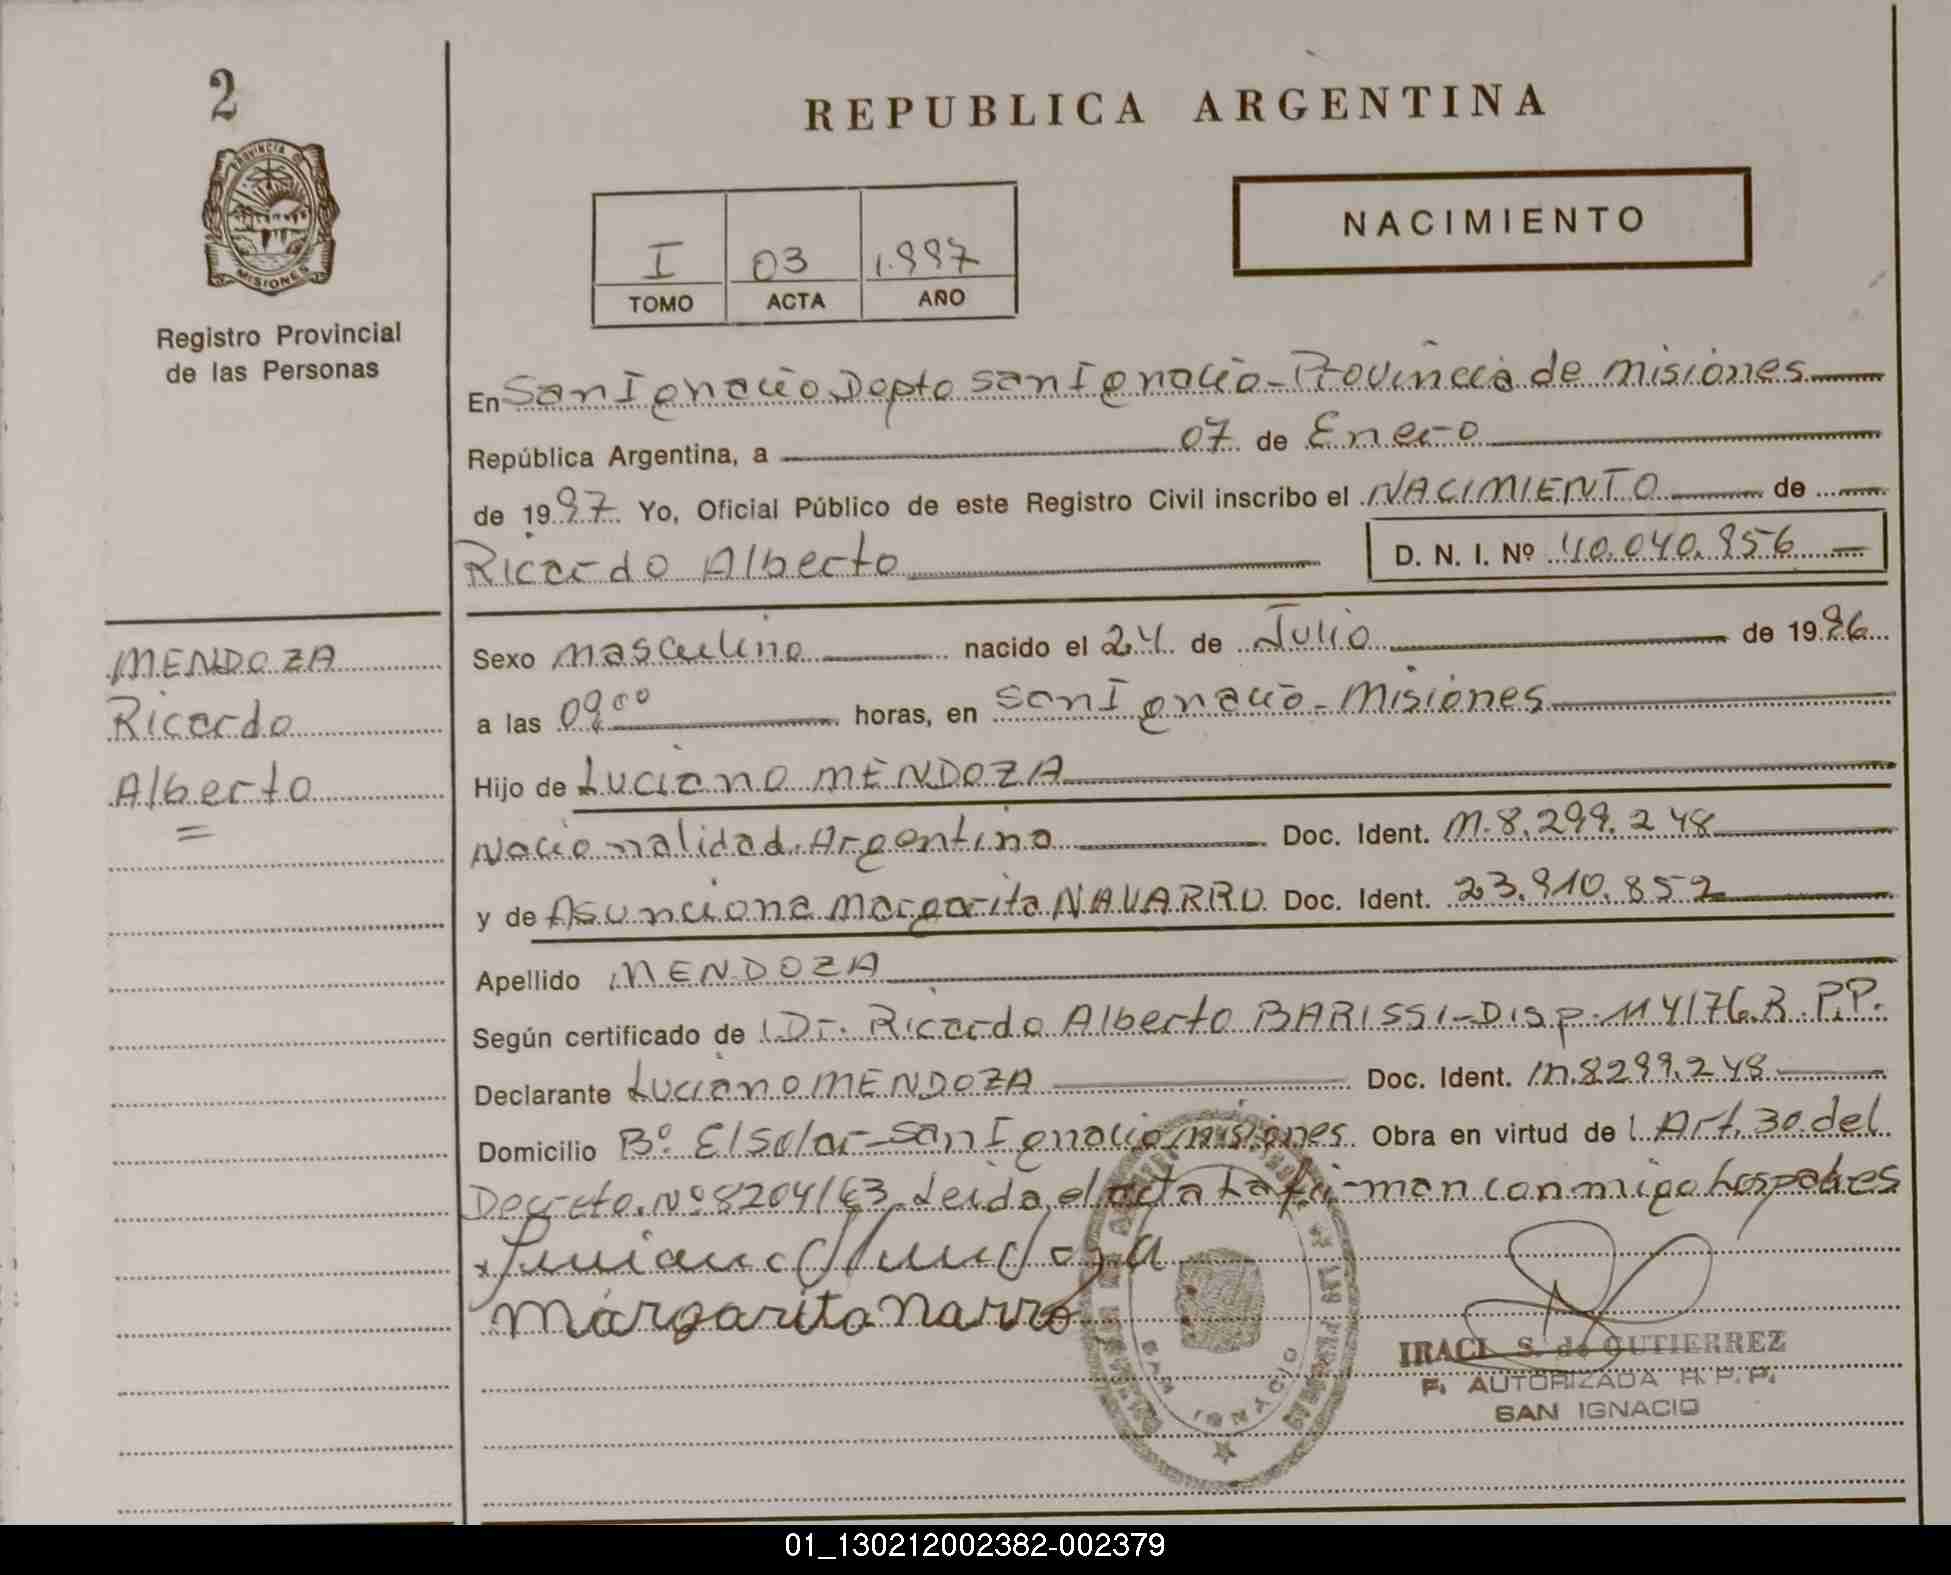 2
REPUBLICA ARGENTINA
PROVINCIA DE
MISIONES
Registro Provincial
de las Personas
I 03 1.997
TOMO ACTA AÑO
NACIMIENTO
En San Ignacio Depto San Ignacio - Provincia de misiones
República Argentina, a 07 de Enero
de 1997 Yo, Oficial Público de este Registro Civil inscribo el NACIMIENTO de
Ricardo Alberto D. N. I. Nº 40.040.956
MENDOZA
Ricardo
Alberto
Sexo masculino nacido el 24 de Julio de 1996
a las 09,00 horas, en San Ignacio - Misiones
Hijo de Luciano MENDOZA
Nacionalidad Argentino Doc. Ident. M. 8.299.248
y de Asunciona Margarita NAVARRO Doc. Ident. 23.910.852
Apellido MENDOZA
Según certificado de l Dr. Ricardo Alberto BARISSI - Disp. 114/76 R.P.P.
Declarante Luciano MENDOZA Doc. Ident. M. 8299.248
Domicilio Bº El Solar - San Ignacio misiones Obra en virtud de l Art. 30 del
Decreto Nº 8204/63 Leida el acta La firman conmigo los padres
Luciano Mendoza
margarita Narro
SAN IGNACIO
IRACI S. de GUTIERREZ
F. AUTORIZADA R.P.P.
SAN IGNACIO
01_130212002382-002379